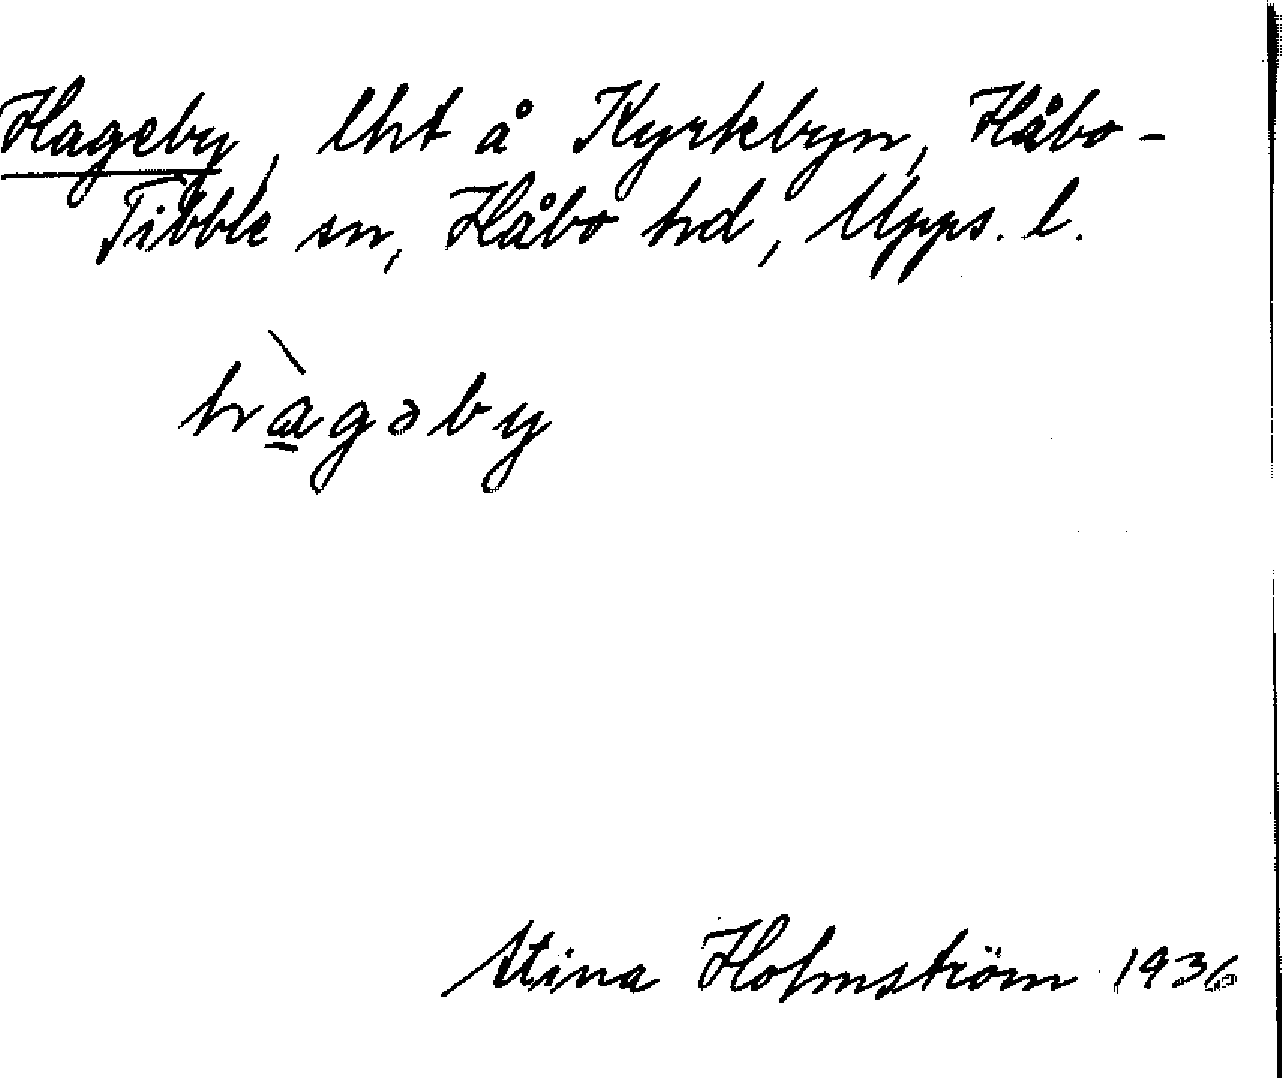 Hageby, lht å Kyrkbyn, Håbo-
Tibble sn, Håbo hd, Upps. l.
hàgəby
Stina Holmström 1936